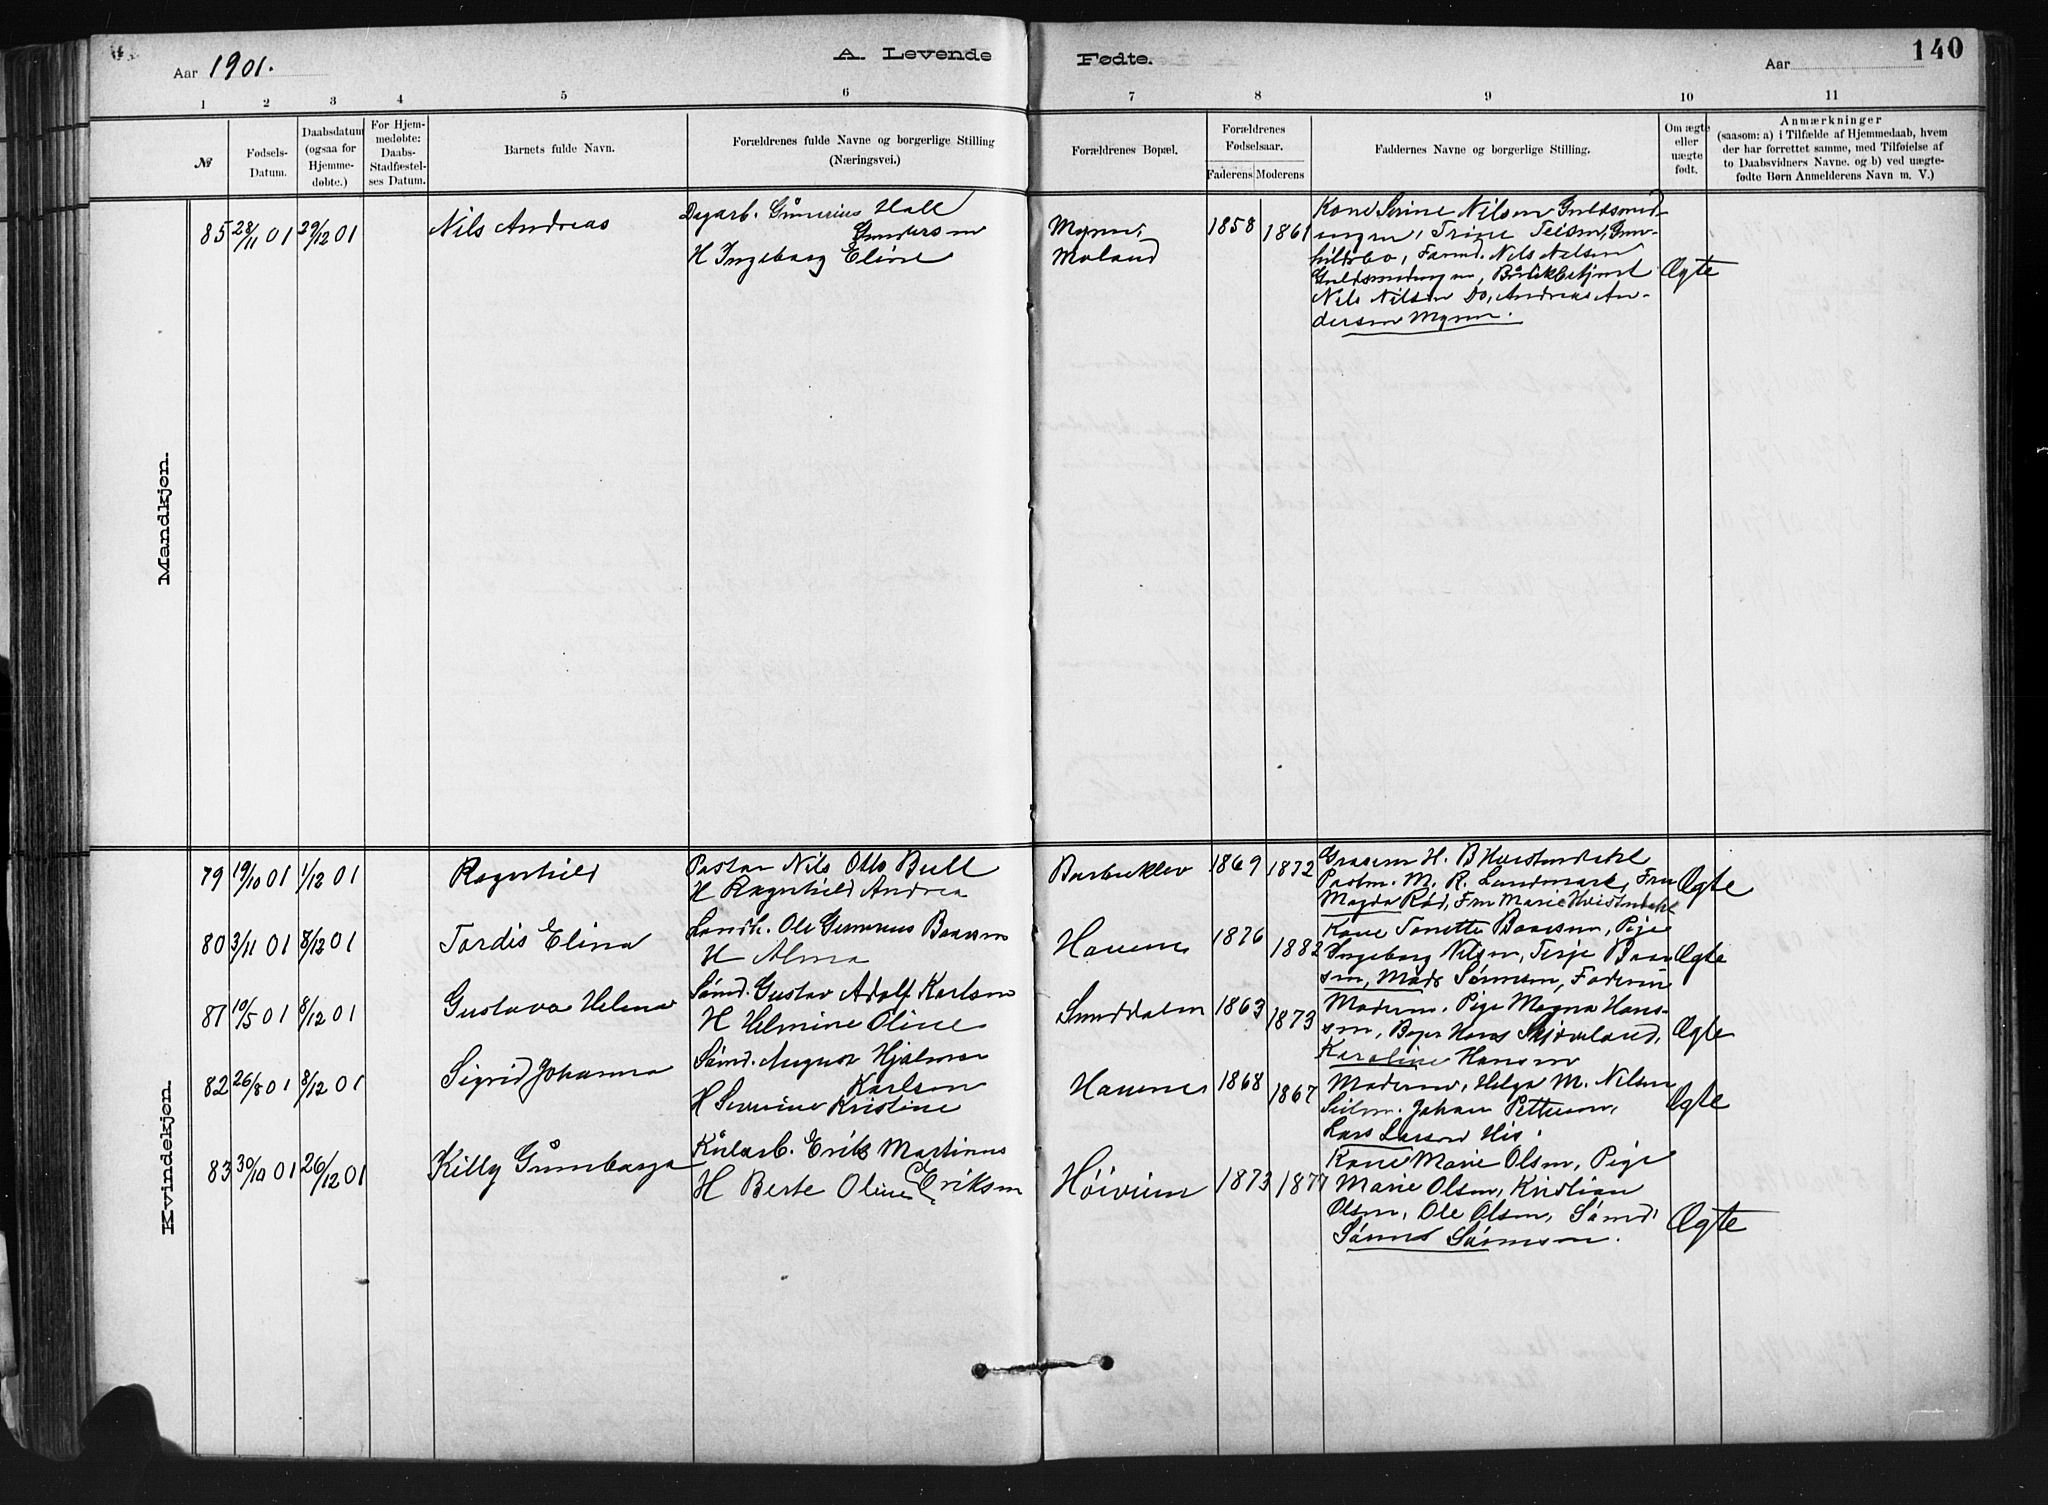 Aar 1901.
A. Levende Fødte.
Aar
140
1 2 3 4 5 6 7 8 9 10 11
№
Fødsels-Datum.
Daabsdatum (ogsaa for Hjemme-døbte.)
For Hjem-medøbte: Daabs-Stadfæstel-ses Datum.
Barnets fulde Navn.
Forældrenes fulde Navne og borgerlige Stilling (Næringsvei.)
Forældrenes Bopæl.
Forældrenes Fødselsaar.
Faderens Moderens
Faddernes Navne og borgerlige Stilling.
Om ægte eller uægte født.
Anmærkninger
(saasom: a) i Tilfælde af Hjemmedaab, hvem
der har forrettet samme, med Tilføielse af
to Daabsvidners Navne. og b) ved uægte-
fødte Børn Anmelderens Navn m. V.)
Mandkjøn.
85 28/11 01 29/12 01 Nils Andreas
Dagarb. Gunerius Hall
Gundersen
H Ingeborg Eline
Moland
1858 1861
Kone Serine Nilsen Guldsmed-
Nils Nilsen
Nils Nilsen Do, Andreas An-
dersen
Ægte
Kvindekjøn.
79 19/10 01 1/12 01 Ragnhild
Pastor Nils Otto Bull
H Ragnhild Andrea
Barbuklev 1869 1872
M. R. Landmark, Fru
Magda Rød, Fru Marie
Ægte
80 3/11 01 8/12 01 Tordis Elina
Ole Gunerius Baasen
H Alma
Havene 1876 1882
Kone Tonette Baasen, Pige
Ingeborg Nilsen, Terje Baa-
sen, Mads Sørensen, Faderen
Ægte
81 10/5 01 8/12 01 Gustava Helena
Sømd. Gustav Adolf Karlsen
H Helmine Oline
1863 1873
Moderen, Pige Magna Han-
sen,
Karoline Hansen
Ægte
82 26/8 01 8/12 01 Sigrid Johanna
Sømd. August Hjalmar
Karlsen
H Severine Kristine
Havene 1868 1867
Moderen, Helga M. Nilsen
Johan Pettersen,
Lars Larsen His.
Ægte
83 30/10 01 26/12 01 Killy Gunborga
Kularb. Erik Martinus
H Berte Oline Eriksen
1873 1877
Kone Marie Olsen, Pige
Marie Olsen, Kristian
Olsen, Ole Olsen, Sømd.
Sørensen.
Ægte